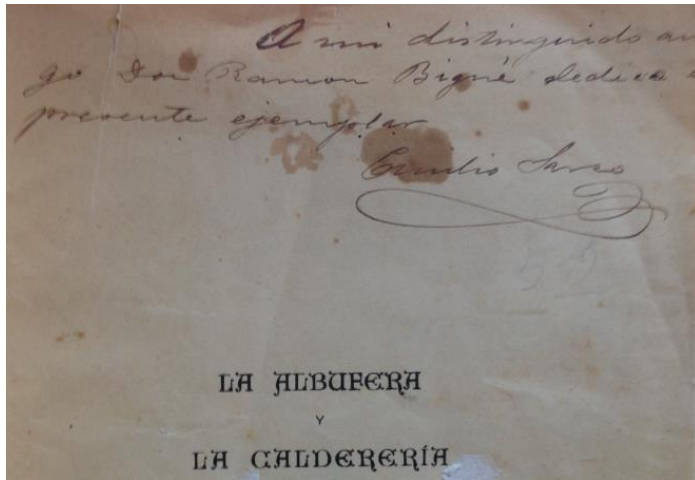 A mi distinguido am
go Don Ramon Bigné dedica
presente ejemplar
Emilio
LA ALBUFERA
Y
LA CALDERERÍA